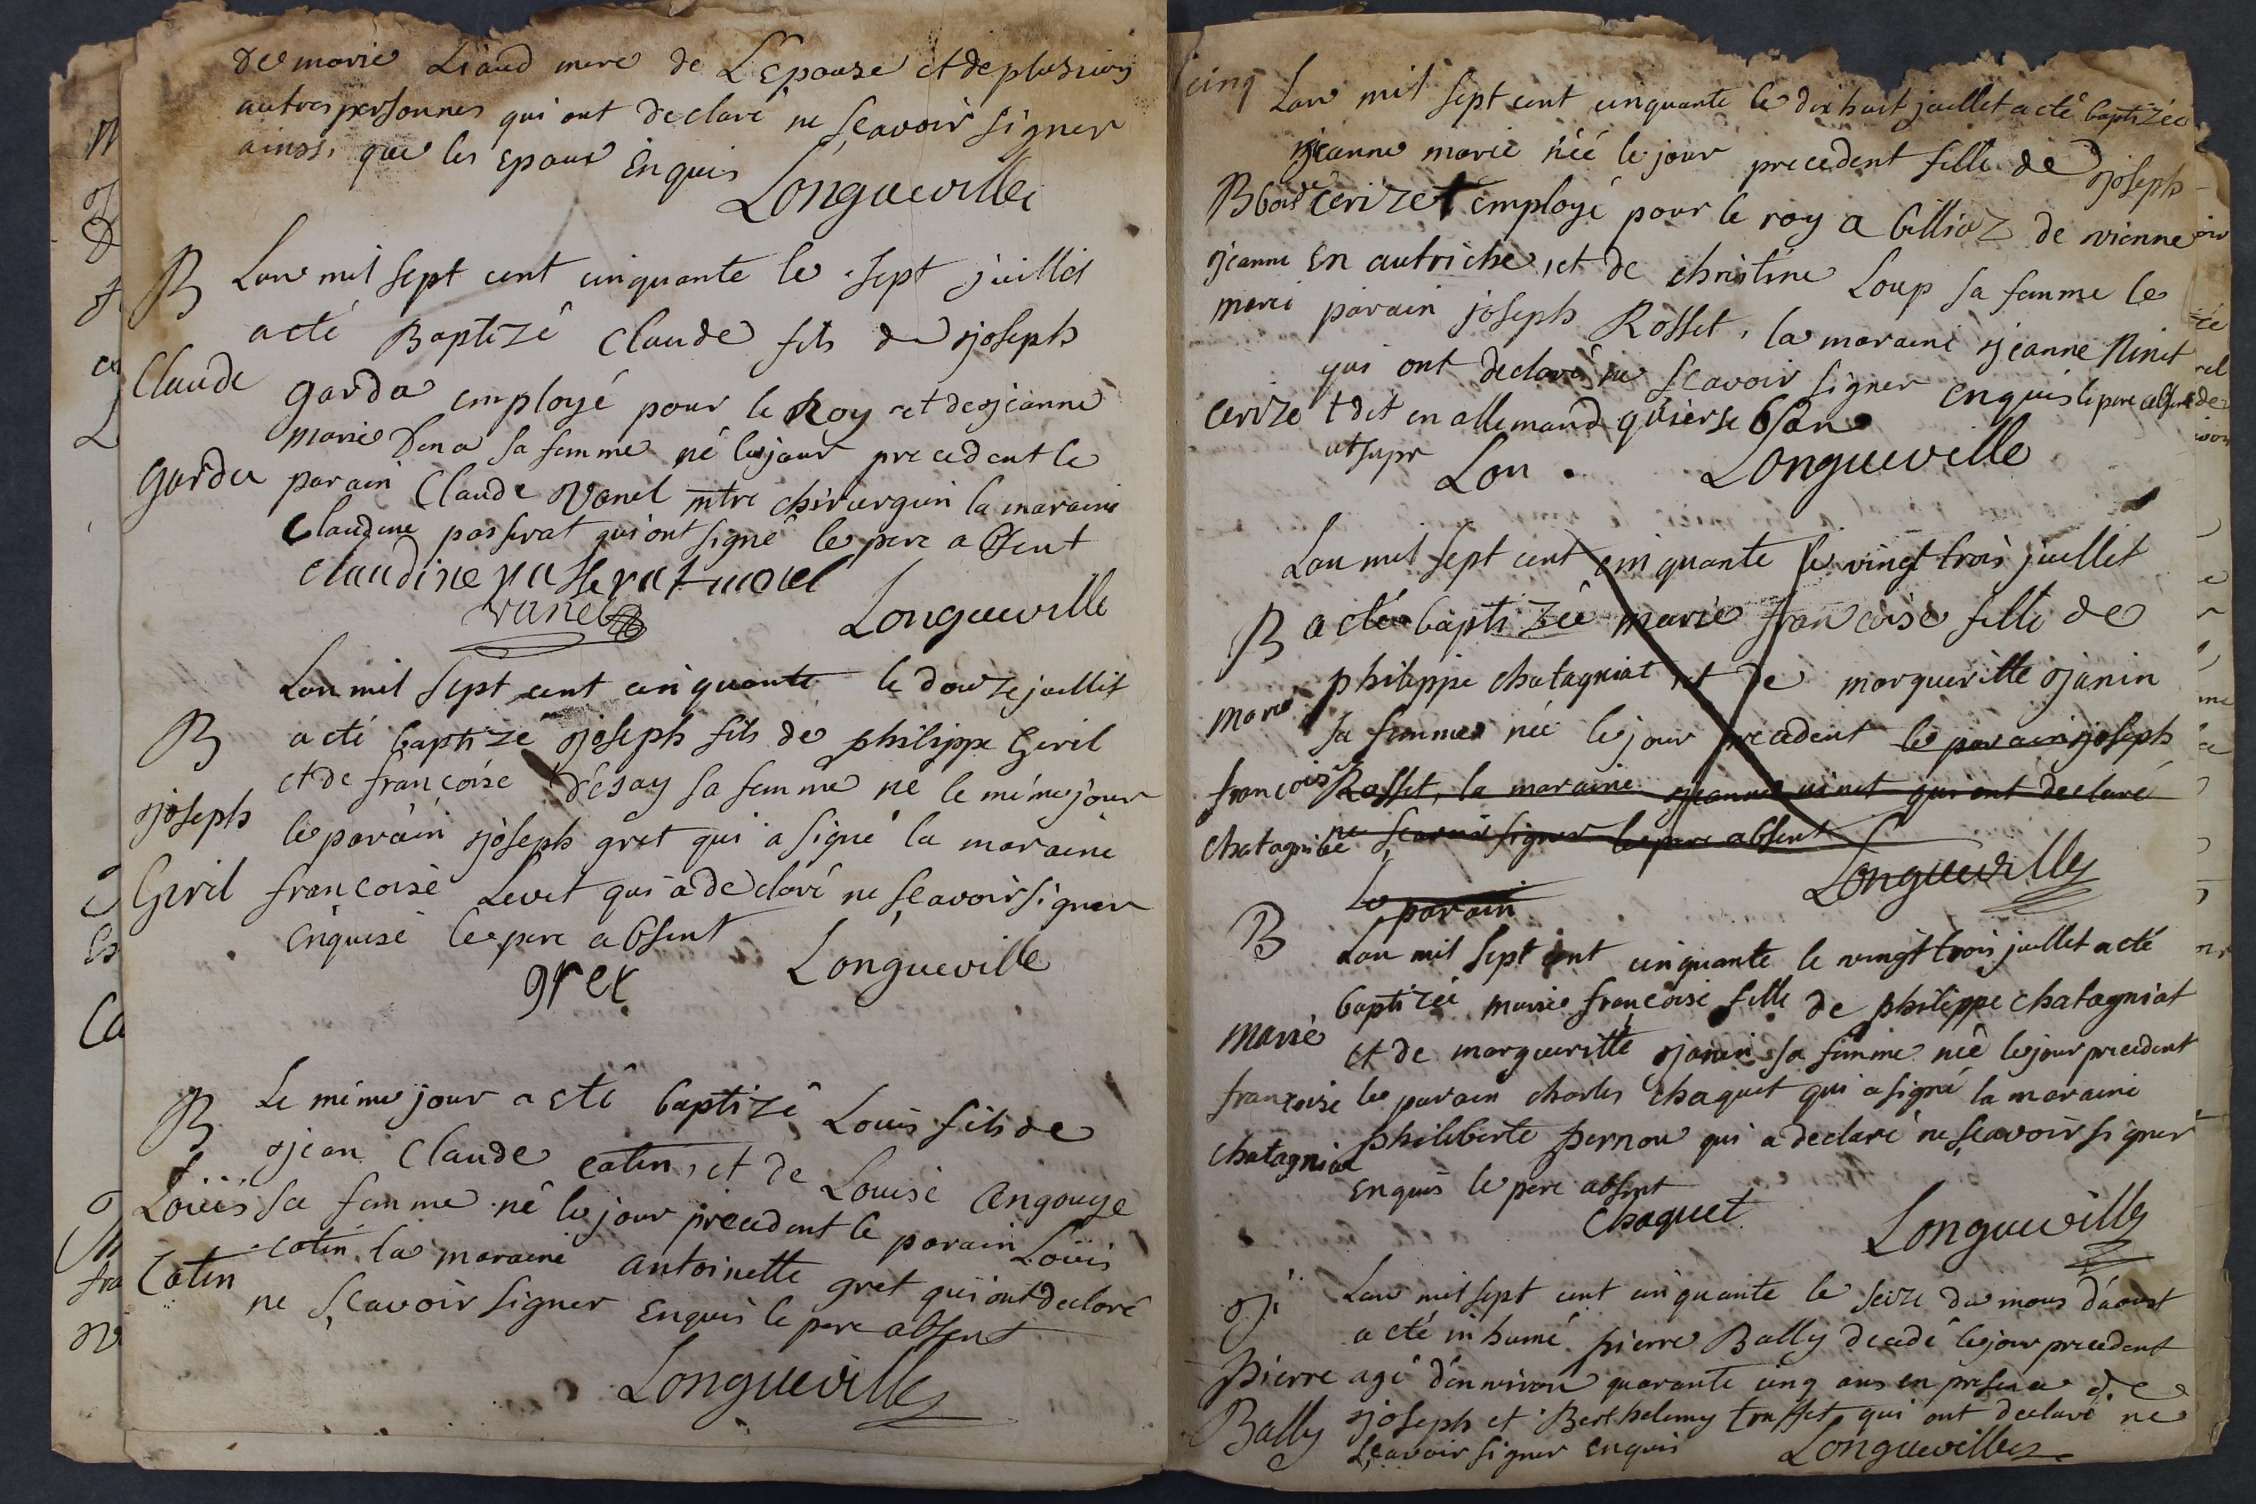 de marie Liaud mere de L'Epouse et de plusieurs
autres personnes qui ont declaré ne sçavoir signer
ainssi que les Epoux Enquis
Longueville
B
Claude
garda
Lan mil sept cent cinquante le sept juillet
a eté Baptizé Claude fils de joseph
garda employé pour le Roy et de jeanne
marie Dona sa femme né le jour precedent le
parain Claude Vanel mtre chirurgien la maraine
Claudine passerat qui ont signé le pere absent
claudine passerat morel
vanel
Longueville
B
joseph
Giril
Lan mil sept cent cinquante le douze juillet
a eté baptizé joseph fils de philippe Giril
et de françoise désay sa femme né le méme jour
le parain joseph gret qui a signé la maraine
françoise Levet qui a declaré ne sçavoir signer
Enquise le pere absent
gret
Longueville
B
Loüis
Catin
Le méme jour a eté baptizé Louis fils de
jean Claude catin, et de Louise Angouge
sa femme né le jour precedent le parain Loüis
catin la maraine antoinette gret qui ont declaré
ne sçavoir signer Enquis le pere absent
Longueville
cinq
B
jeanne
marie
cerizet
Lan mil sept cent cinquante le dix huit juillet a eté baptizée
jeanne marie née le jour precedent fille de joseph
cerizet employé pour le roy a billiaz de vienne
En autriche, et de christine Loup sa femme le
parain joseph Rosset, la maraine jeanne Ninet
qui ont declaré ne sçavoir signer enquis le pere absent
dit en allemand
ut supr
Lon
Longueville
B
marie
françoise
chatagniat
Lan mil sept cent cinquante le vingt trois juillet
a eté baptizée marie françoise fille de
philippe chatagniat et de margueritte janin
sa femme née le jour precedent le parain joseph
Rosset, la maraine jeanne ninet qui ont declaré
ne sçavoir signer le pere absent
Longueville
Le parain
B
Marie
françoise
chatagniat
Lan mil sept cent cinquante le vingt trois juillet a eté
baptizée marie françoise fille de philippe chatagniat
et de margueritte janin sa femme née le jour precedent
le parain charles chaquet qui a signé la maraine
philiberte pernou qui a declaré ne sçavoir signer
Enquis le pere absent
chaquet
Longueville
pierre
Bally
Lan mil sept cent cinquante le seize du mois d'aoust
a eté inhumé pierre Bally decedé le jour precedent
agé d'environ quarante cinq ans en presence de
joseph et Berthelemy truffet qui ont declaré ne
sçavoir signer enquis
Longueville